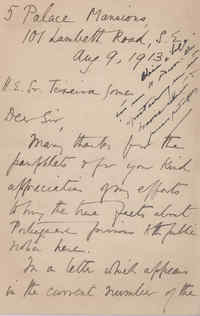 5 Palace Mansions,
101 Lambeth Road, S.E.
Aug 9, 1913.
H.E. Sr. Teixeira Gomes
Dear Sir,
Many thanks for the
pamphlets & for your kind
appreciation of my efforts
to bring the true facts about
Portuguese prisons to the public
notice here.
In a letter which appears
in the current number of the